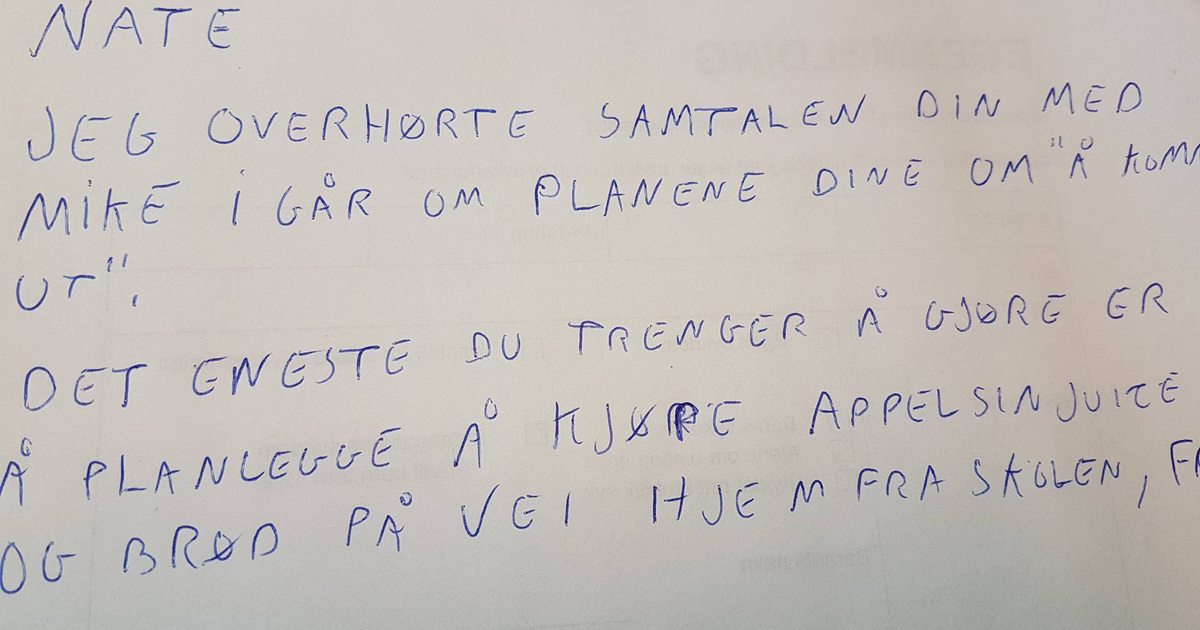 NATE
JEG OVERHØRTE SAMTALEN DIN MED
MIKE I GÅR OM PLANENE DINE OM "Å KOMM
UT".
DET ENESTE DU TRENGER Å GJØRE ER
Å PLANLEGGE Å KJØPE APPELSINJUICE
OG BRØD PÅ VEI HJEM FRA SKOLEN, FR